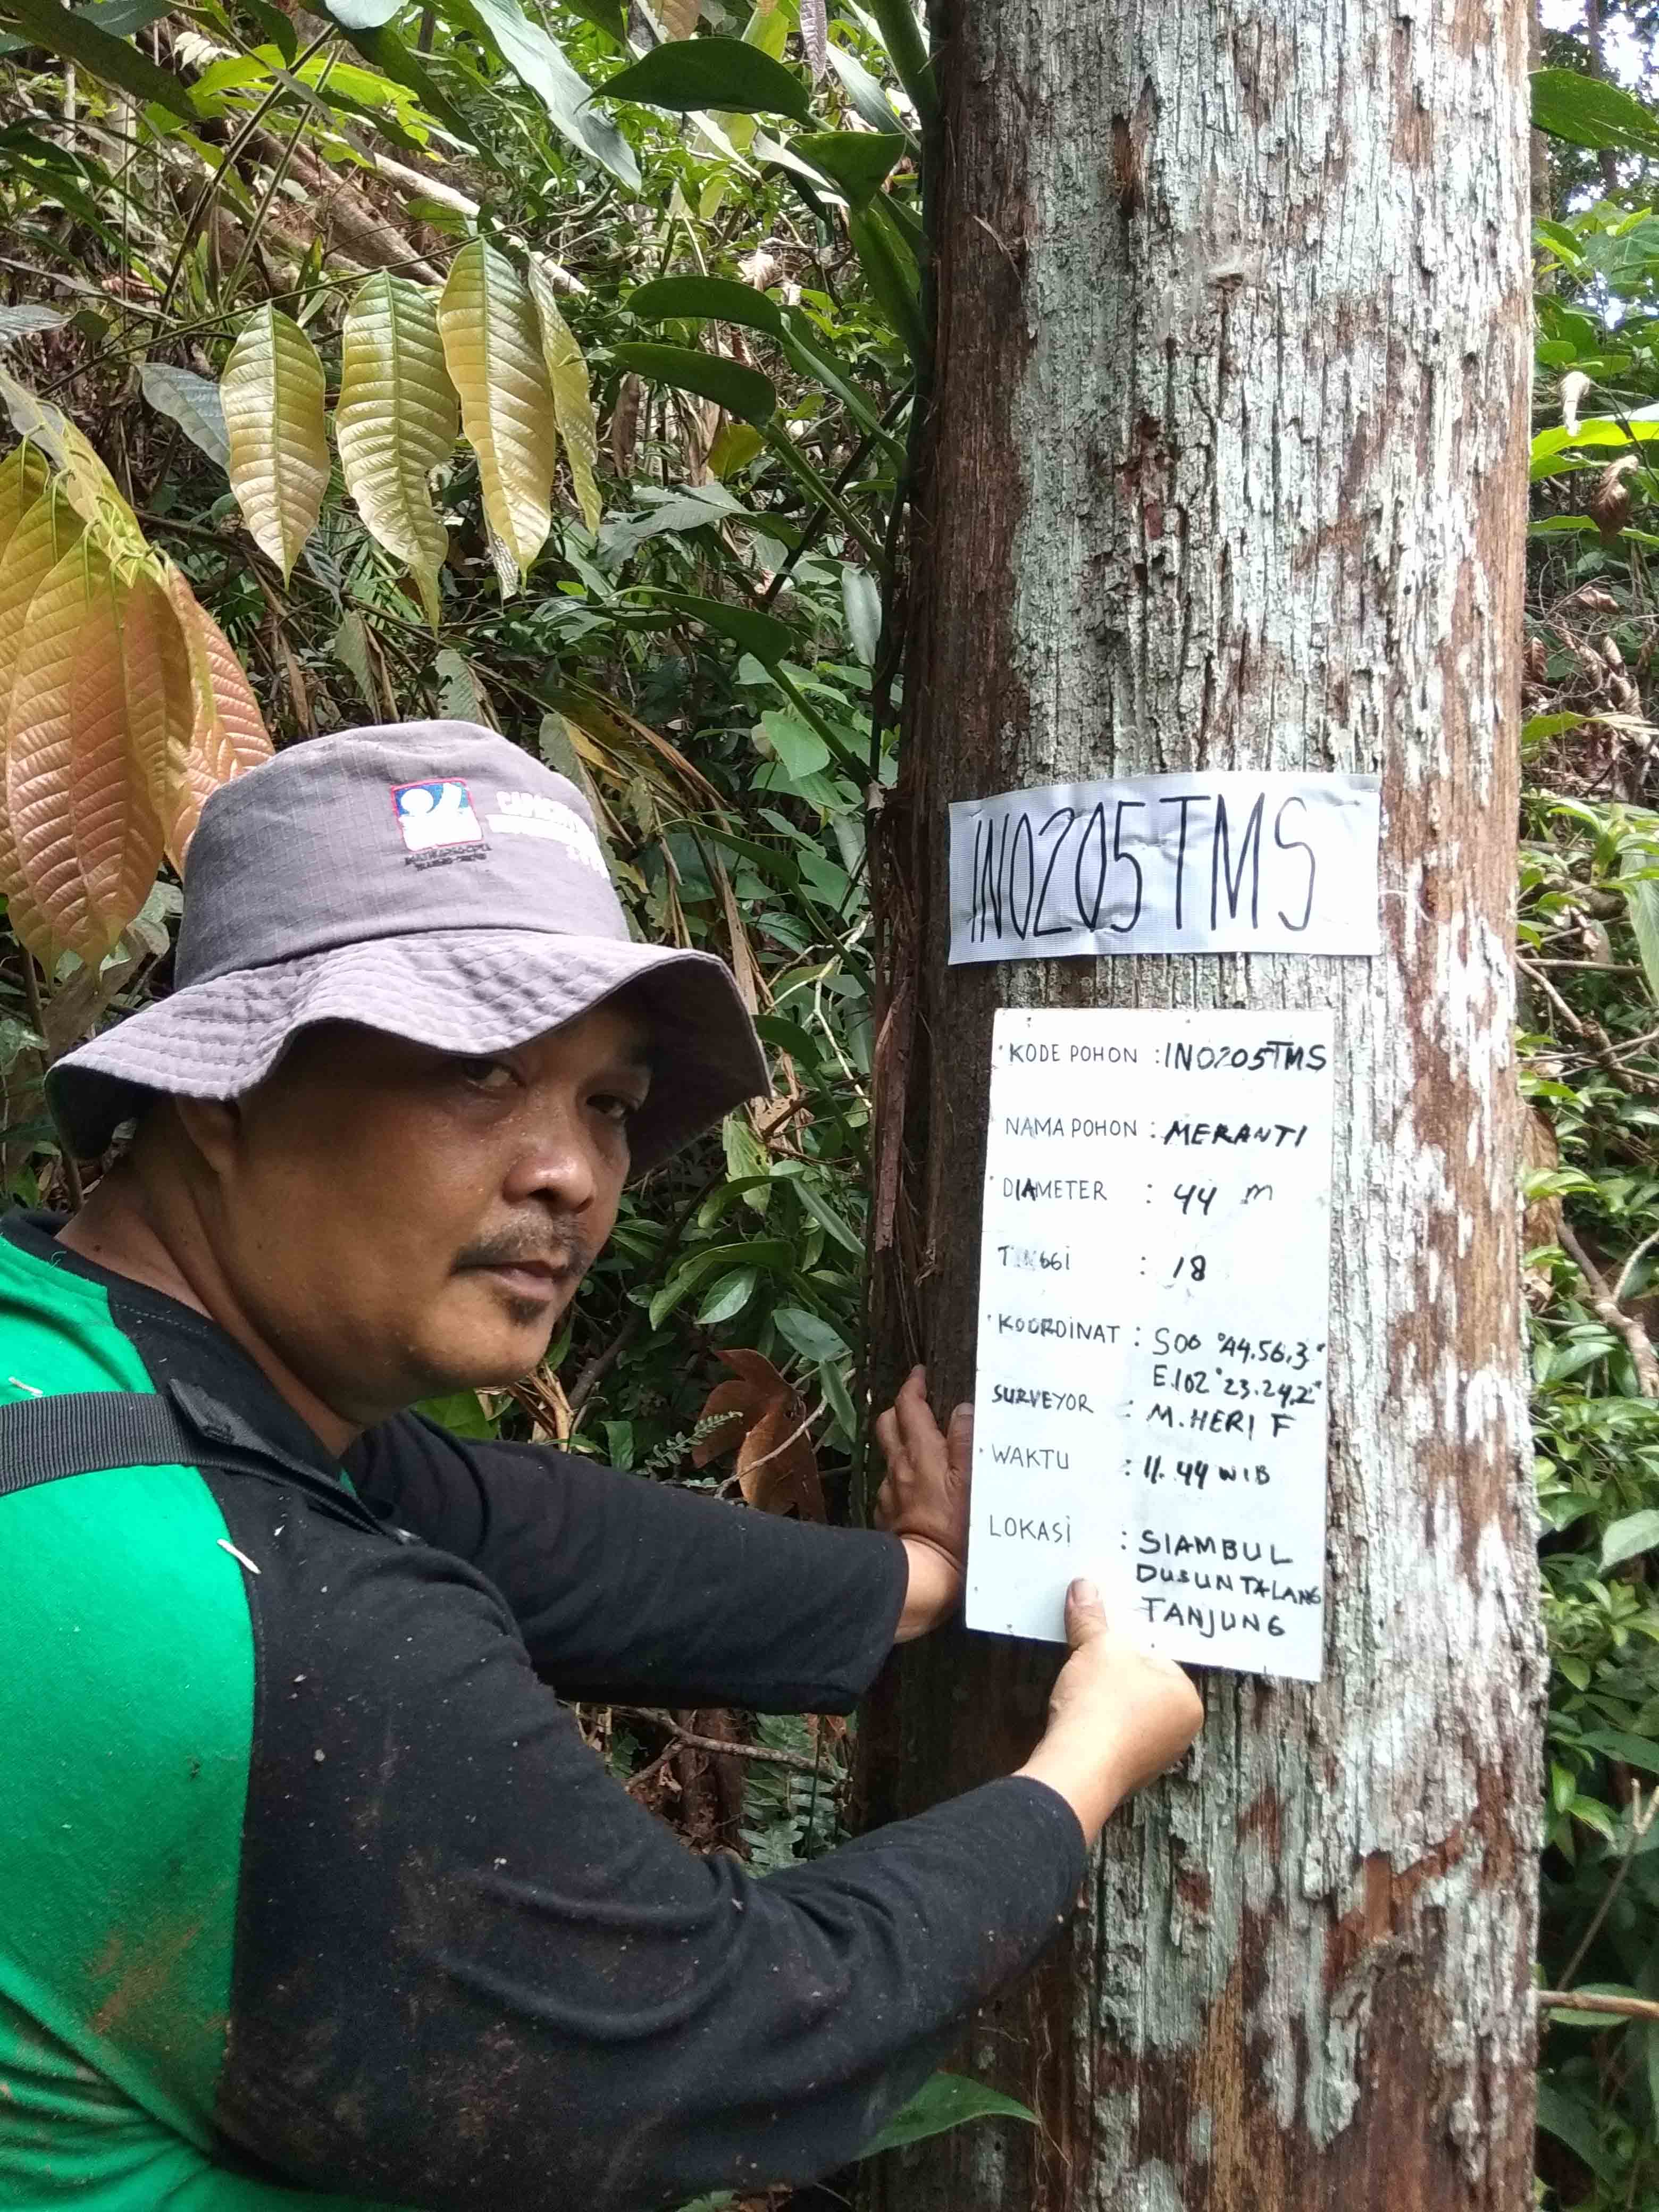 IN0205TMS
KODE POHON : IN0205TMS
NAMA POHON : MERANTI
DIAMETER : 44 m
TINGGI : 18
KOORDINAT : S00 °44.56.3"
E.102°23.24,2"
SURVEYOR : M.HERI F
WAKTU : 11.44 WIB
LOKASI : SIAMBUL
DUSUN TALANG
TANJUNG